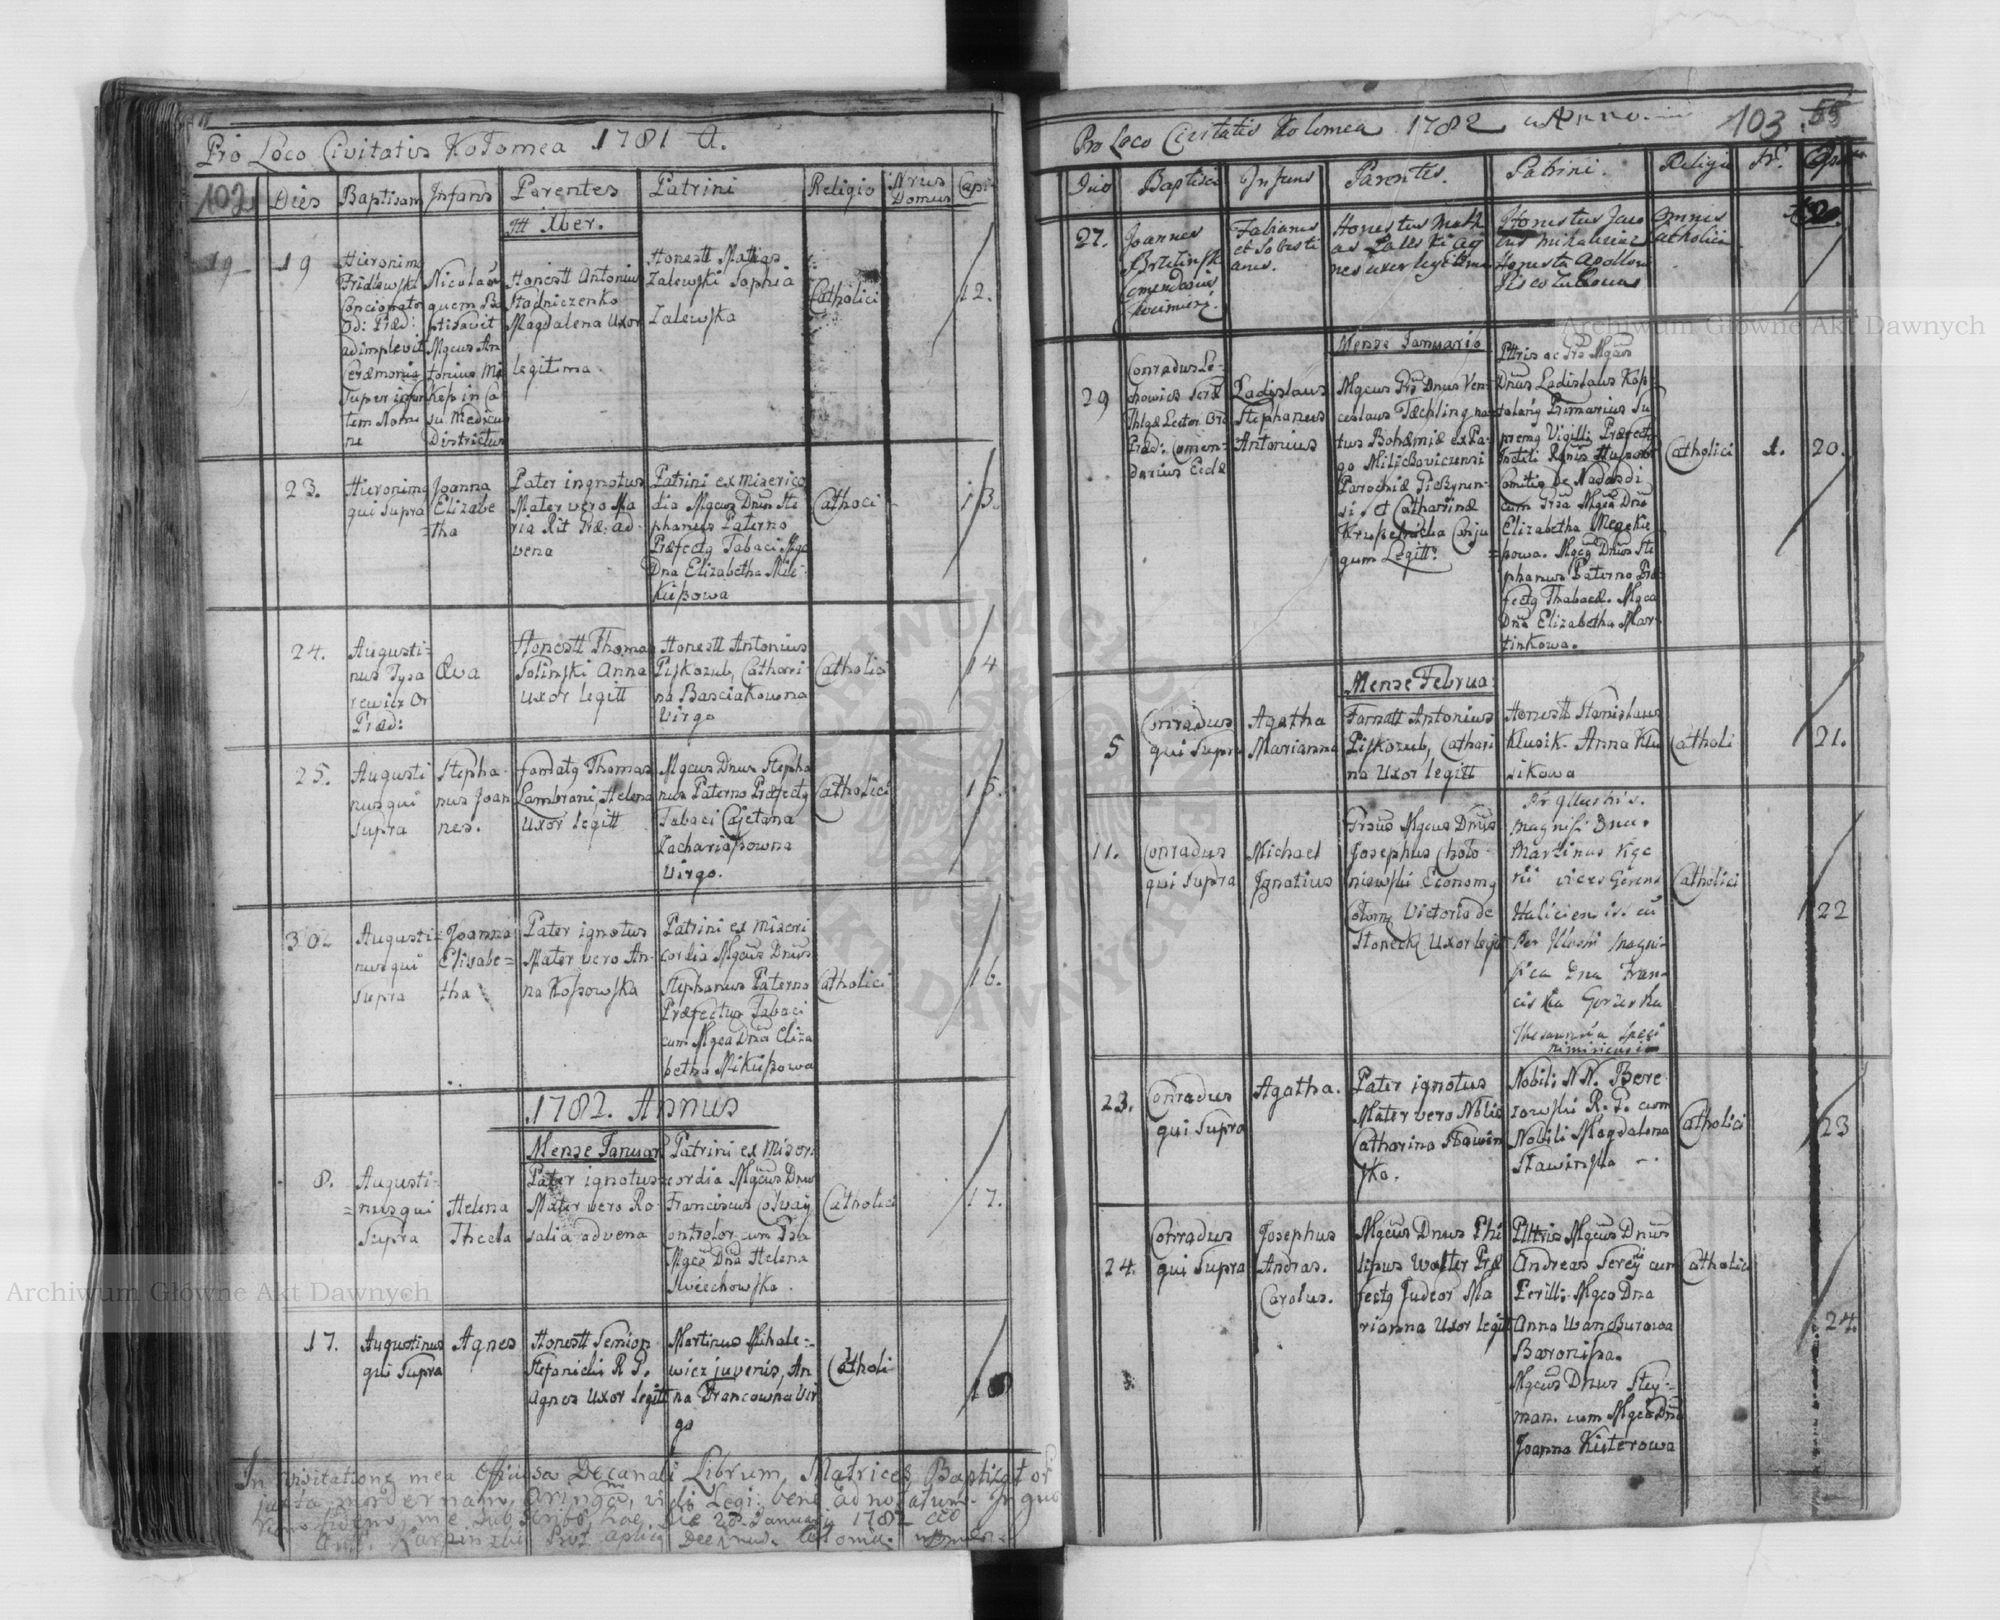 Pro Loco Civitatis Kołomea 1781 A.
102 Dies Baptisam Infans Parentes Patrini Religio Nrus Domus Capi
Xber.
19 19
Hieronim9
Fridlewski
Concionator
Od: Præd:
adimplevit
Ceræmonia
Super infan
tem Nomi
ne
Nicolaus
quem Ba
ptisavit
Mgcus An
tonius Mi
Kesz in Ca
su Medicus
Districtus
Honestt Antonius
Stadniczenko
Magdalena Uxor
legitima
Honestt Mathias
Zalewski Sophia
Zalewska
Catholici
12.
23.
Hieronim9
qui Supra
Joanna
Elizabe
=tha
Pater ingnotus
Mater vero Ma
ria Rit Græ: ad
vena
Patrini ex miserico
dia Mgcus Dnus Ste
phanus Paterno
Præfect9 Tabaci Mgca
Dna Elizabetha Mile
Kiszowa
Cathoci
13.
24.
Augusti=
nus Tysa
rewicz Or
Præd:
Ewa
Honestt Thomas
Soliński Anna
Uxor legitt
Honestt Antonius
Piskozub, Cathari
na Basciakowna
Virgo
Catholici
14
25.
Augusti
nus qui
Supra
Stepha
nus Joan
nes.
Thomas
Lambrani, Helena
Uxor legitt
Mgcus Dnus Stepha
nus Paterno Præfect9
Tabaci Cajetana
Zachariaszowna
Virgo.
Catholici
15.
30.
Augusti=
nus qui
Supra
Joanna
Elisabe=
tha
Pater ignotus
Mater vero An-
na Kossowska
Patrini ex Miseri
cordia Mgcus Dnus
Stephanus Paterno
Præfectus Tabaci
cum Mgca Dna Eliza
betha Mikiszowa
Catholici
16.
1782. Annus
Mense Januar
8.
Augusti=
nus qui
Supra
Helena
Thecla
Pater ignotus
Mater vero Ro
salia advena
Patrini ex Miseri
cordia Mgcus Dnus
Franciscus Colvay
Controlor cum
Mgca Dna Helena
Swiechowska
Catholici
17.
17.
Augustinus
qui Supra
Agnes
Honestt Semion
Stefanicki R G.
Agnes Uxor legitt
Martinus Mihale=
wicz juvenis, An
na Francowna Vir
go
Catholi
In Visitatione mea Officiosa Decanali Librum, Matrices Baptizator
vidi Legi: bene adnotatum. In quo
fidem, me subscribo, hac, Die 28 Januarii 1782
Pro Loco Civitatis Kolomea 1782 Anno 103 55
Baptisa Infans Parentes. Patrini. Religio Nr.
27.
Joannes
Fabianus
et Sebasti
anus.
Honestus Math
as Zaleski Ag
nes uxor legitima
Honestus Jaco
bus
Honesta Apollon
Omnes
Catholici
Mense Januario
29
Conradus Le-
chowicz Scræ
Thlgæ Lector Ord
Præd: Comen-
darius Eccl
Ladislaus
Stephanus
Antonius
Mgcus Grs Dnus Ven-
ceslaus Tæchling na
tus Bohæmiæ ex Pa-
go Milicżovicensi
Parochiæ Gießynen-
si, et Catharinæ
Krupetricka Conju
gum Legitt:
Ptris ac Grs Mgcus
Dnus Ladislaus Kop
talany Primarius Su
prem9 Vigilli Præfect9
Incliti Rgnis Hussor
Comitis De Nadasdi
cum Grsa Mgca Dna
Elizabetha Megekie
szowa. Mgcus Dnus Ste
phanus Paterno Præ
fect9 Thabacæ. Mgca
Dna Elizabetha Mar-
tinkowa.
Catholici
1.
20.
Mense Februa:
5
Conradus
qui Supra
Agatha
Marianna
Antonius
Piskozub, Cathari
na Uxor legitt
Honestt Stanislaus
Klusik. Anna Klu
sikowa
Catholi
21.
11.
Conradus
qui Supra
Michael
Ignatius
Grsus Mgcus Dnus
Josephus Choło-
niewski Econom9
Colom: Victoria de
Słonecki Uxor legitt
Magnif: Dnu.
Martinus
vices Gerens
Haliciensis cu
Magni-
fica Dna Fran-
ciska Gorzerska
Catholici
22
23.
Conradus
qui Supra
Agatha.
Pater ignotus
Mater vero Nblis
Catharina Stawin
ska.
Nobili NN. Bere
zowski R. G. cum
Nobili Magdalena
Stawinska
Catholici
23
24.
Conradus
qui Supra
Josephus
Andras.
Carolus.
Mgcus Dnus Phi
lipus Walter Præ
fect9 Judæor Ma
rianna Uxor legitt
Plltris Mgcus Dnus
Andreas Serey cum
Perill: Mgca Dna
Anna Wan Burowa
Baronissa.
Mgcus Dnus Stey=
man. cum Mgca Dna
Joanna Kisterowa
Catholici
24.
Archiwum Główne Akt Dawnych
Archiwum Główne Akt Dawnych
ARCHIWUM GŁÓWNE AKT DAWNYCH